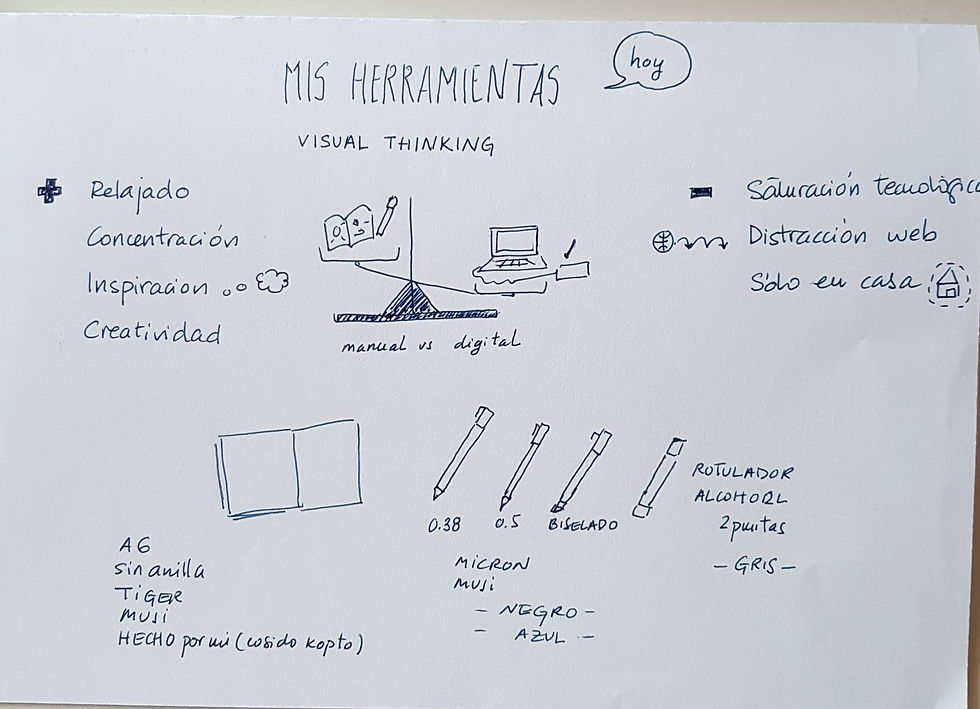 MIS HERRAMIENTAS
hoy
VISUAL THINKING
Relajado
Concentración
Inspiracion
Creatividad
manual vs digital
Saturación tecnológic
Distracción web
Sólo en casa
A6
sin anilla
TIGER
MUSI
HECHO por mi (cosido kopto)
0.38
0.5
BISELADO
MICRON
MUSI
- NEGRO -
- AZUL -
ROTULADOR
ALCOHOOL
2 puntas
- GRIS -